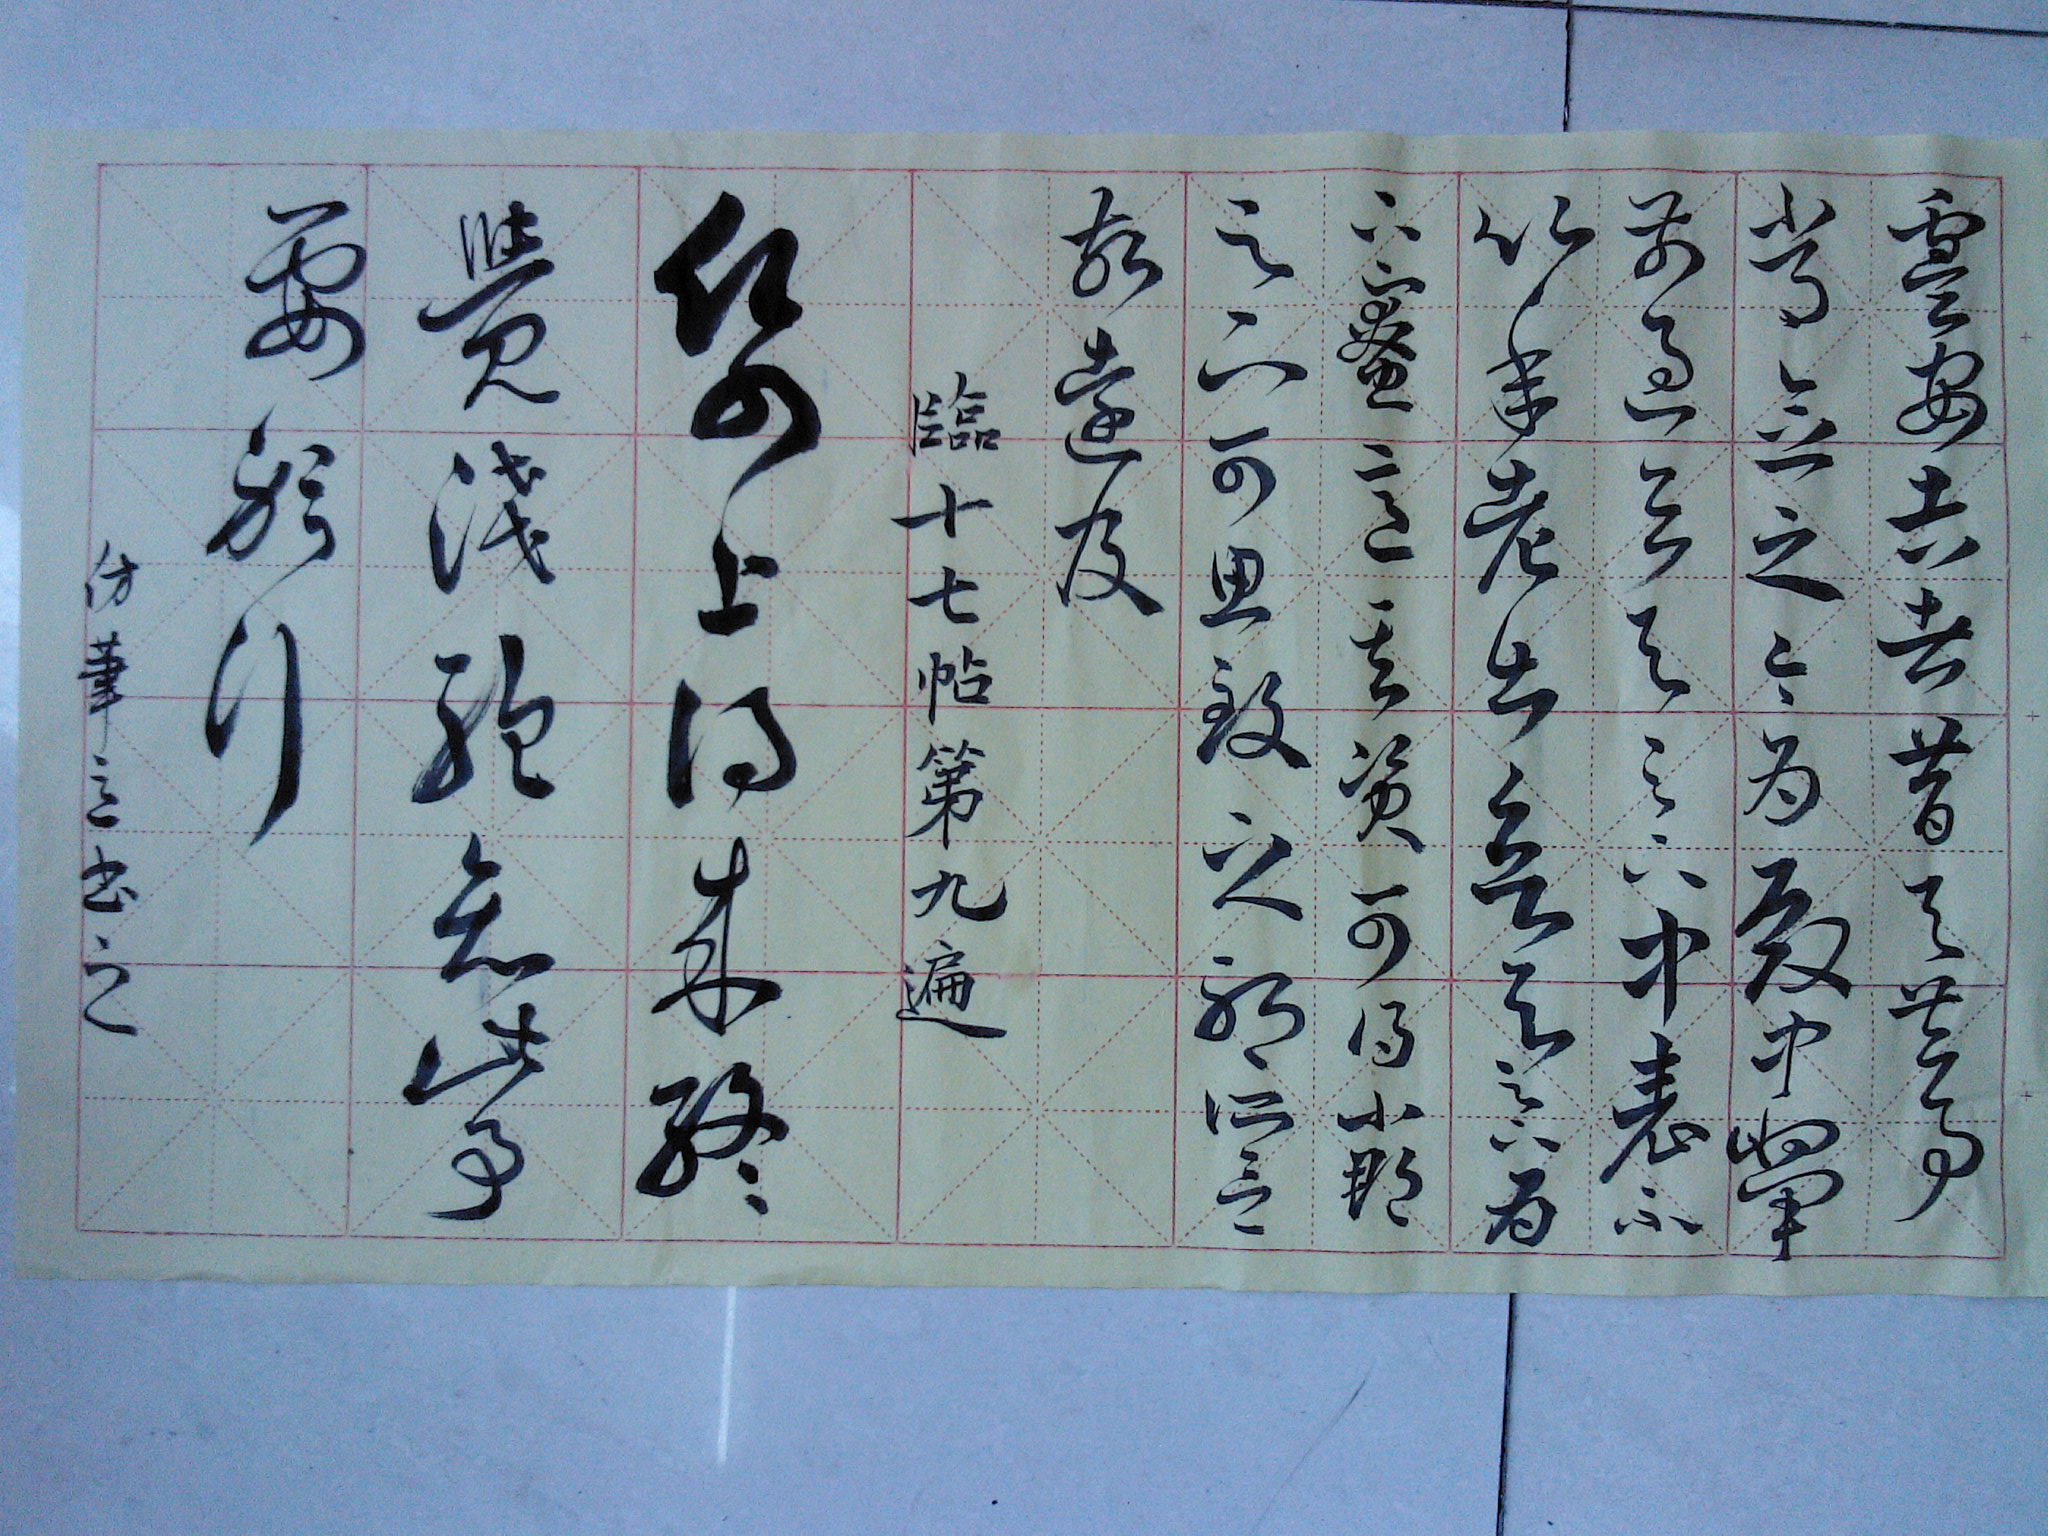 虞安吉者昔與共事
常念之今為殿中將軍
前過云與足下中表不
以年老甚欲與足下為
下寮意其資可得小郡
足下可思致之耶所念
故遠及
臨十七帖第九遍
紙上得來終
覺淺絕知此事
要躬行
仿筆意書之